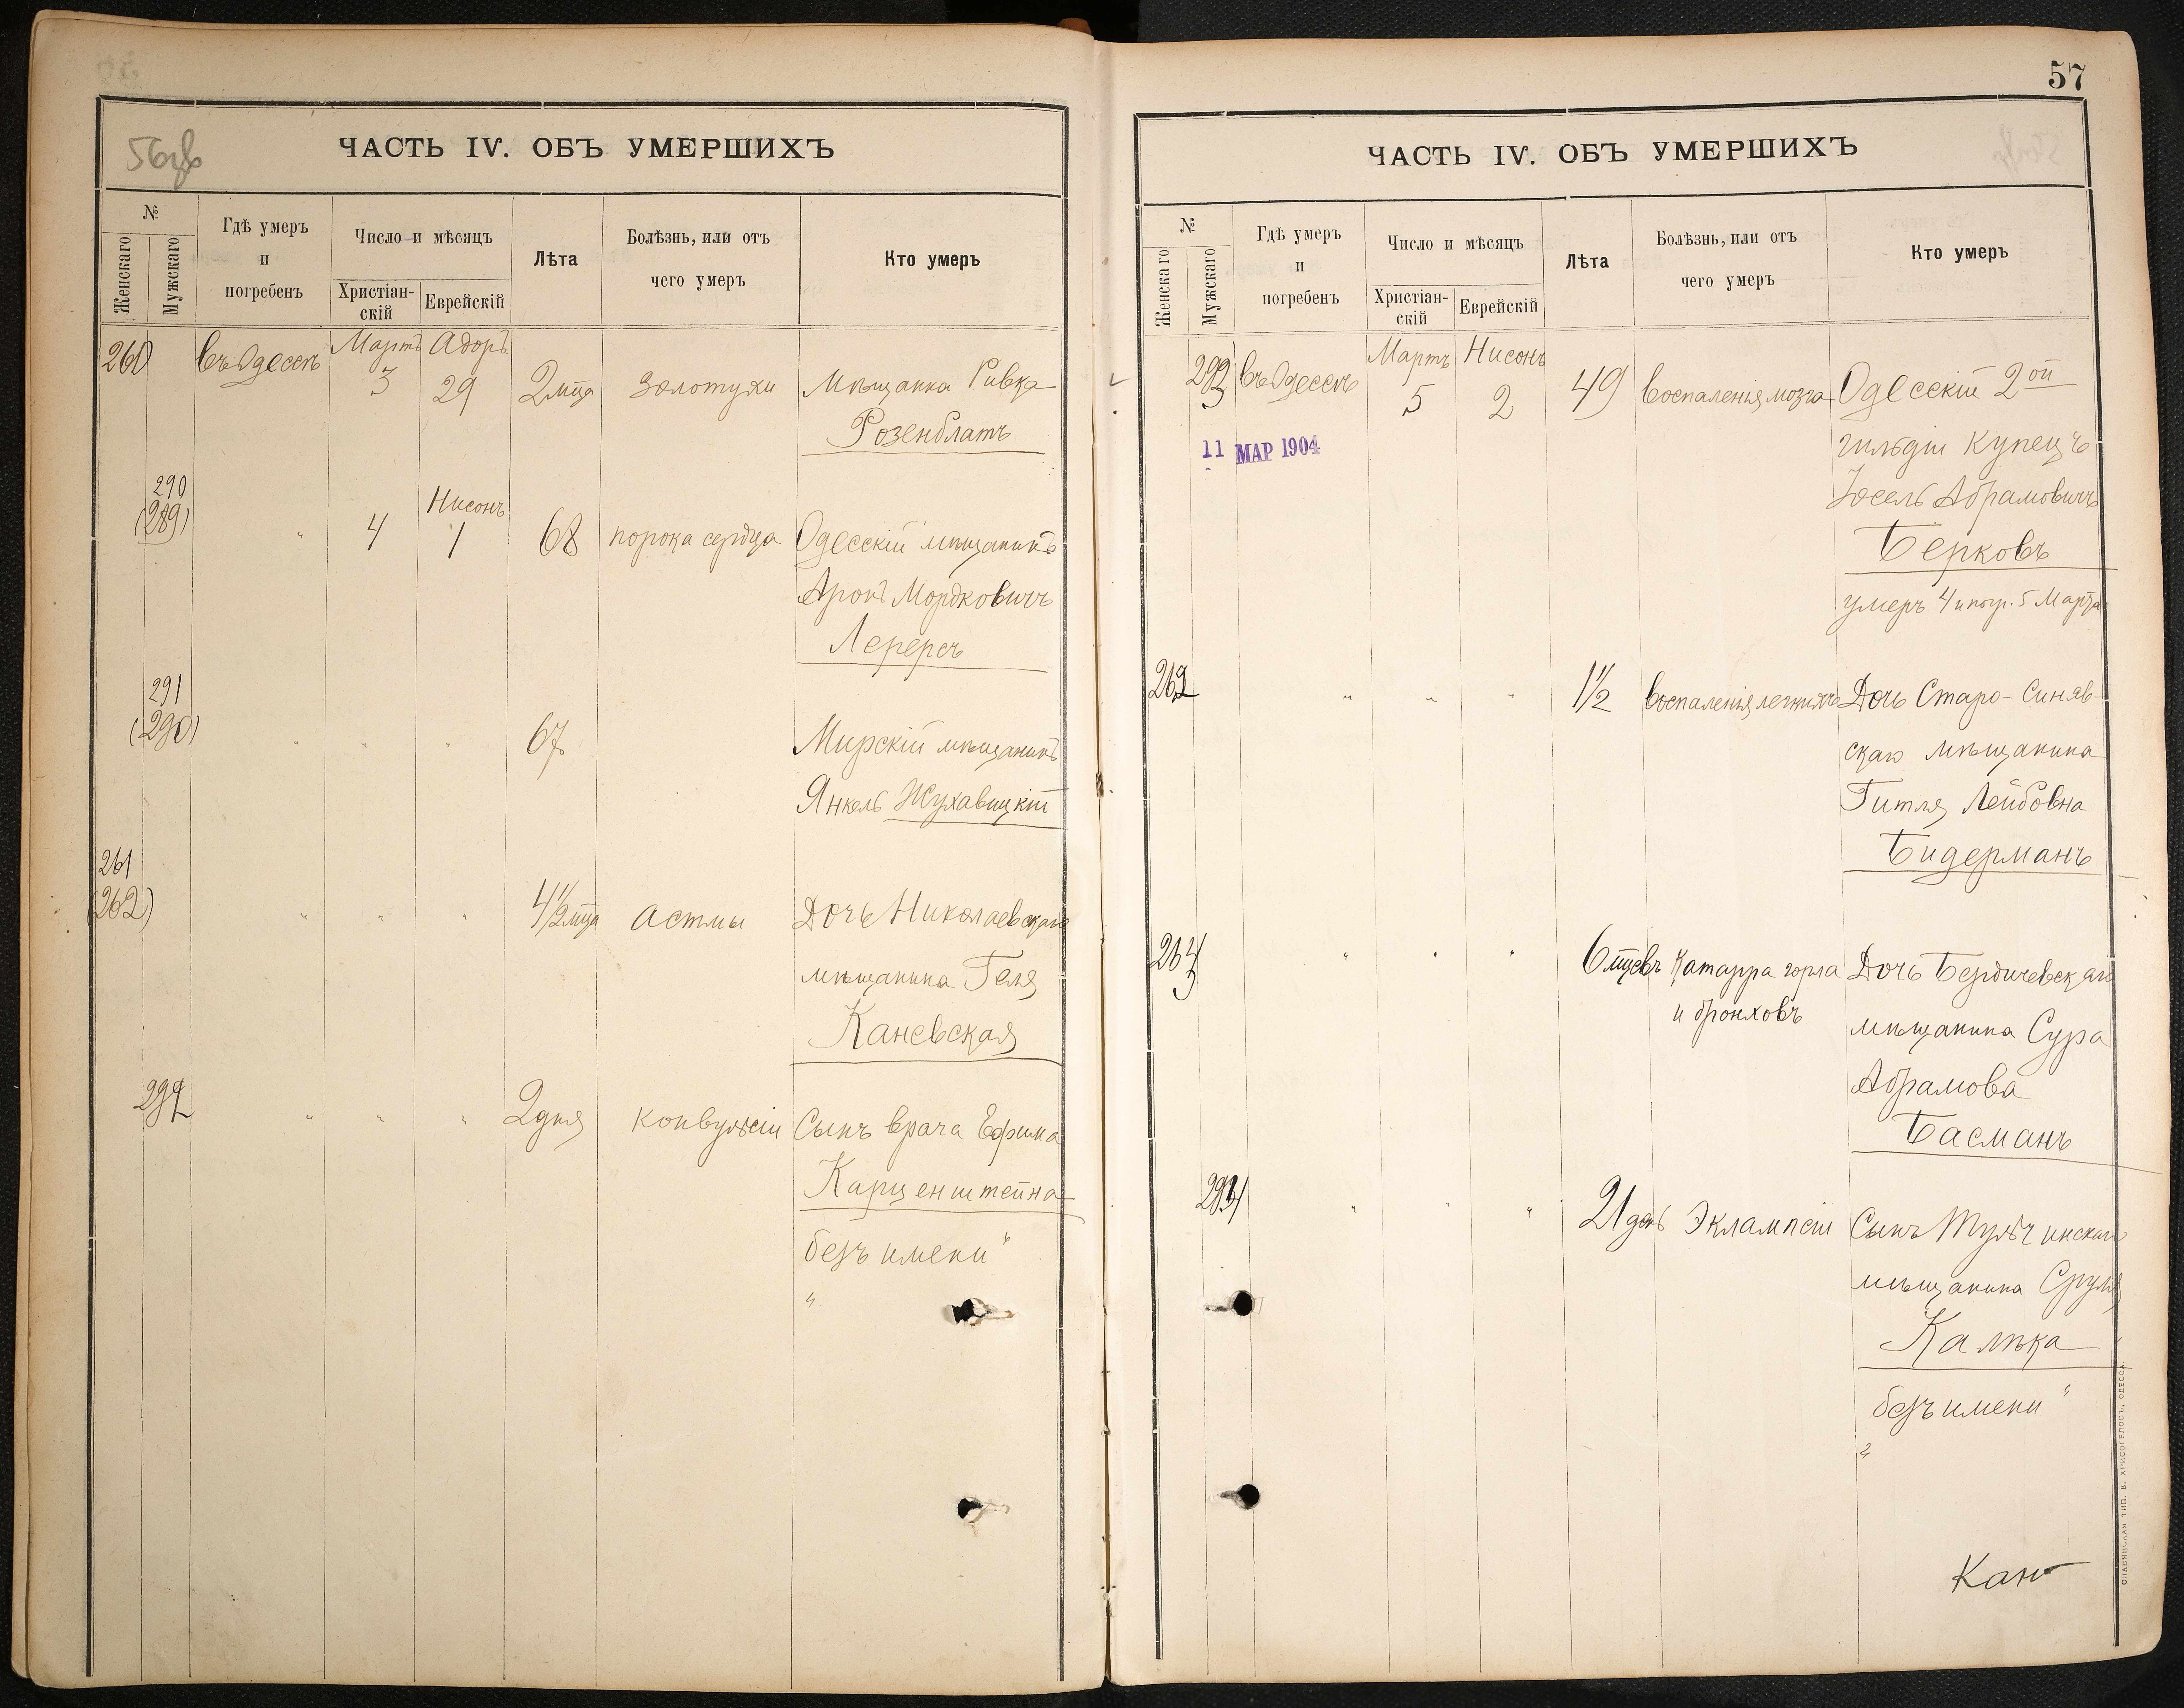 56об
ЧАСТЬ IV. ОБЪ УМЕРШИХЪ
№
Женскаго
Мужскаго
Гдѣ умеръ
и
погребенъ
Число и мѣсяцъ
Христіан-
скій
Еврейскій
Лѣта
Болѣзнь, или отъ
чего умеръ
Кто умеръ
Мартъ Адоръ
въ Одессѣ 3 29 2 мца золотухи Мѣщанка Ривка
Розенблатъ
290
Нисонъ
(289) " 4 1 68 порока сердца Одесскій мѣщанинъ
Аронъ Мордковичъ
Лерерсъ
291
(290) " " " 67 Мирскій мѣщанинъ
Янкель Жухавицкій
261
(262) " " " 4 1/2 мца Астмы Дочь Николаевскаго
мѣщанина Геня
Каневская
292 " " " 2 дня конвульсіи Сынъ врача Ефима
Карценштейна
безъ имени "
"
57
ЧАСТЬ IV. ОБЪ УМЕРШИХЪ
№
Женскаго
Мужскаго
Гдѣ умеръ
и
погребенъ
Число и мѣсяцъ
Христіан-
скій
Еврейскій
Лѣта
Болѣзнь, или отъ
чего умеръ
Кто умеръ
Мартъ Нисонъ
293 въ Одессѣ 5 2 49 воспаленія мозга Одесскій 2ой
гильдіи купецъ
11 МАР 1904
Іосель Абрамовичъ
Берковъ
умеръ 4 и погр. 5 Марта
262 " " " 1 1/2 воспаленія легкихъ Дочь Старо-Синяв-
скаго мѣщанина
Гитля Лейбовна
Бидерманъ
" " " 6 мцевъ Катарра горла Дочь Бердичевскаго
и бронховъ
мѣщанина Сура
Абрамова
Басманъ
294 " " " 21 день Эклампсіи Сынъ Тульчинскаго
мѣщанина Сруля
Калѣка
безъ имени "
"
СЛАВЯНСКАЯ ТИП. Е. ХРИСОГЕЛОСЪ, ОДЕССА